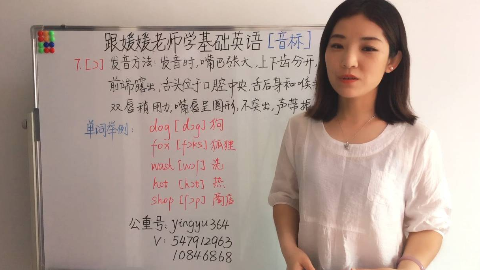 跟媛媛老师学基础英语[音标]
7.[ɔ]发音方法:发音时,嘴巴张大,上下齿分开,
前端露出,舌头位于口腔中央,舌后身和喉
双唇稍用力,嘴唇呈圆形,不突出,声带振
单词举例:
dog [dɔg] 狗
fox [fɔks] 狐狸
wash [wɔʃ] 洗
hot [hɔt] 热
shop [ʃɔp] 商店
公重号:yingyu364
V:547912963
10846868